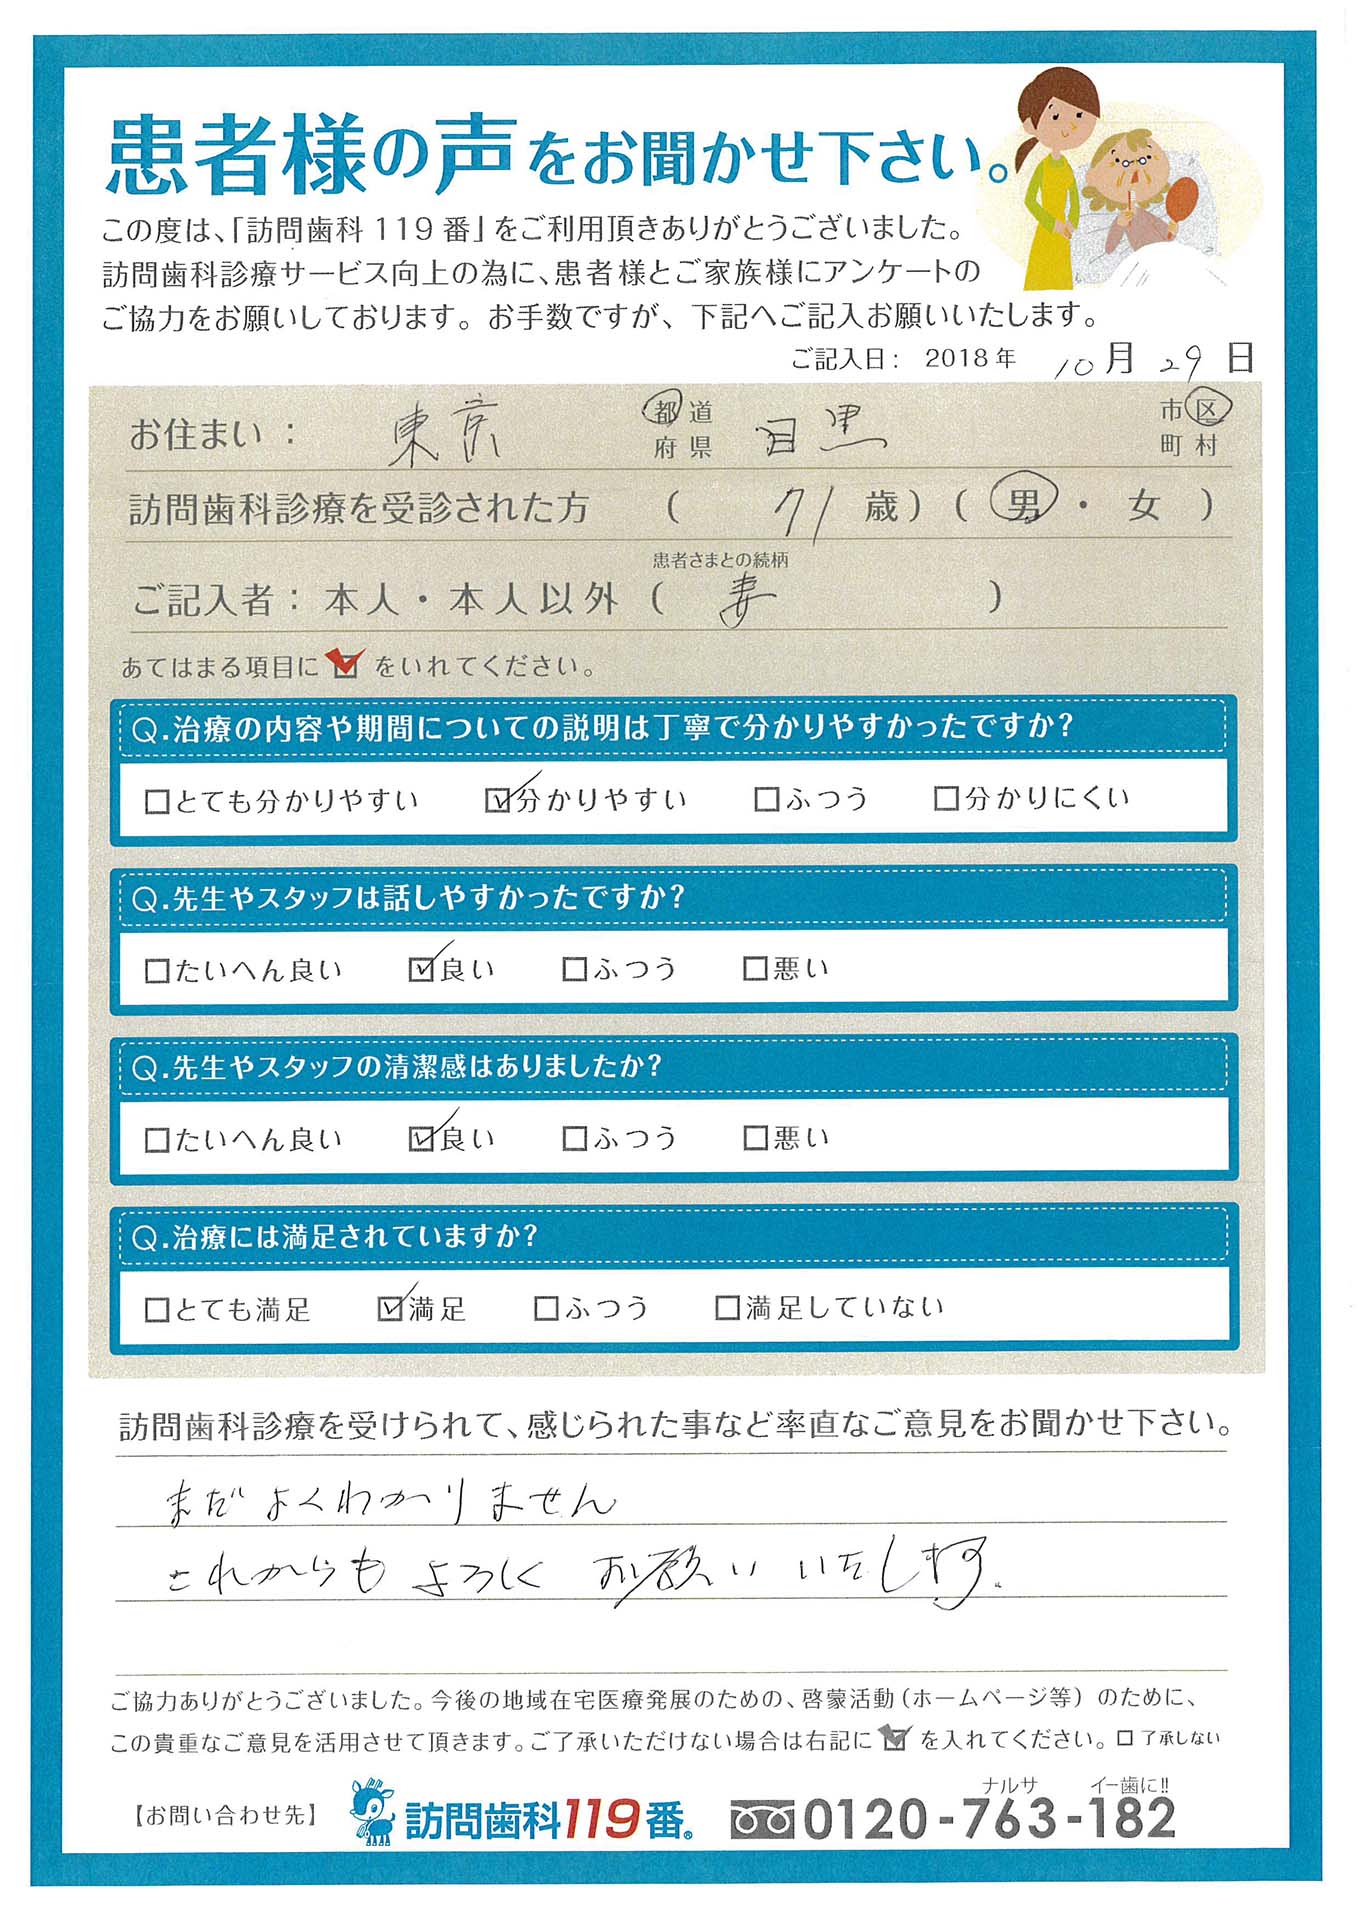 患者様の声をお聞かせ下さい。
この度は、「訪問歯科119番」をご利用頂きありがとうございました。
訪問歯科診療サービス向上の為に、患者様とご家族様にアンケートの
ご協力をお願いしております。お手数ですが、下記へご記入お願いいたします。
ご記入日： 2018年 10月 29日
お住まい： 東京 都道府県 目黒 市区町村
訪問歯科診療を受診された方 （ 71歳）（ 男・女 ）
患者さまとの続柄
ご記入者：本人・本人以外（ 妻 ）
あてはまる項目に☑をいれてください。
Q.治療の内容や期間についての説明は丁寧で分かりやすかったですか？
□とても分かりやすい ☑分かりやすい □ふつう □分かりにくい
Q.先生やスタッフは話しやすかったですか？
□たいへん良い ☑良い □ふつう □悪い
Q.先生やスタッフの清潔感はありましたか？
□たいへん良い ☑良い □ふつう □悪い
Q.治療には満足されていますか？
□とても満足 ☑満足 □ふつう □満足していない
訪問歯科診療を受けられて、感じられた事など率直なご意見をお聞かせ下さい。
まだよくわかりません
これからもよろしくお願いいたします。
ご協力ありがとうございました。今後の地域在宅医療発展のための、啓蒙活動（ホームページ等）のために、
この貴重なご意見を活用させて頂きます。ご了承いただけない場合は右記に☑を入れてください。□了承しない
ナルサ イー歯に!!
【お問い合わせ先】 訪問歯科119番® 0120-763-182